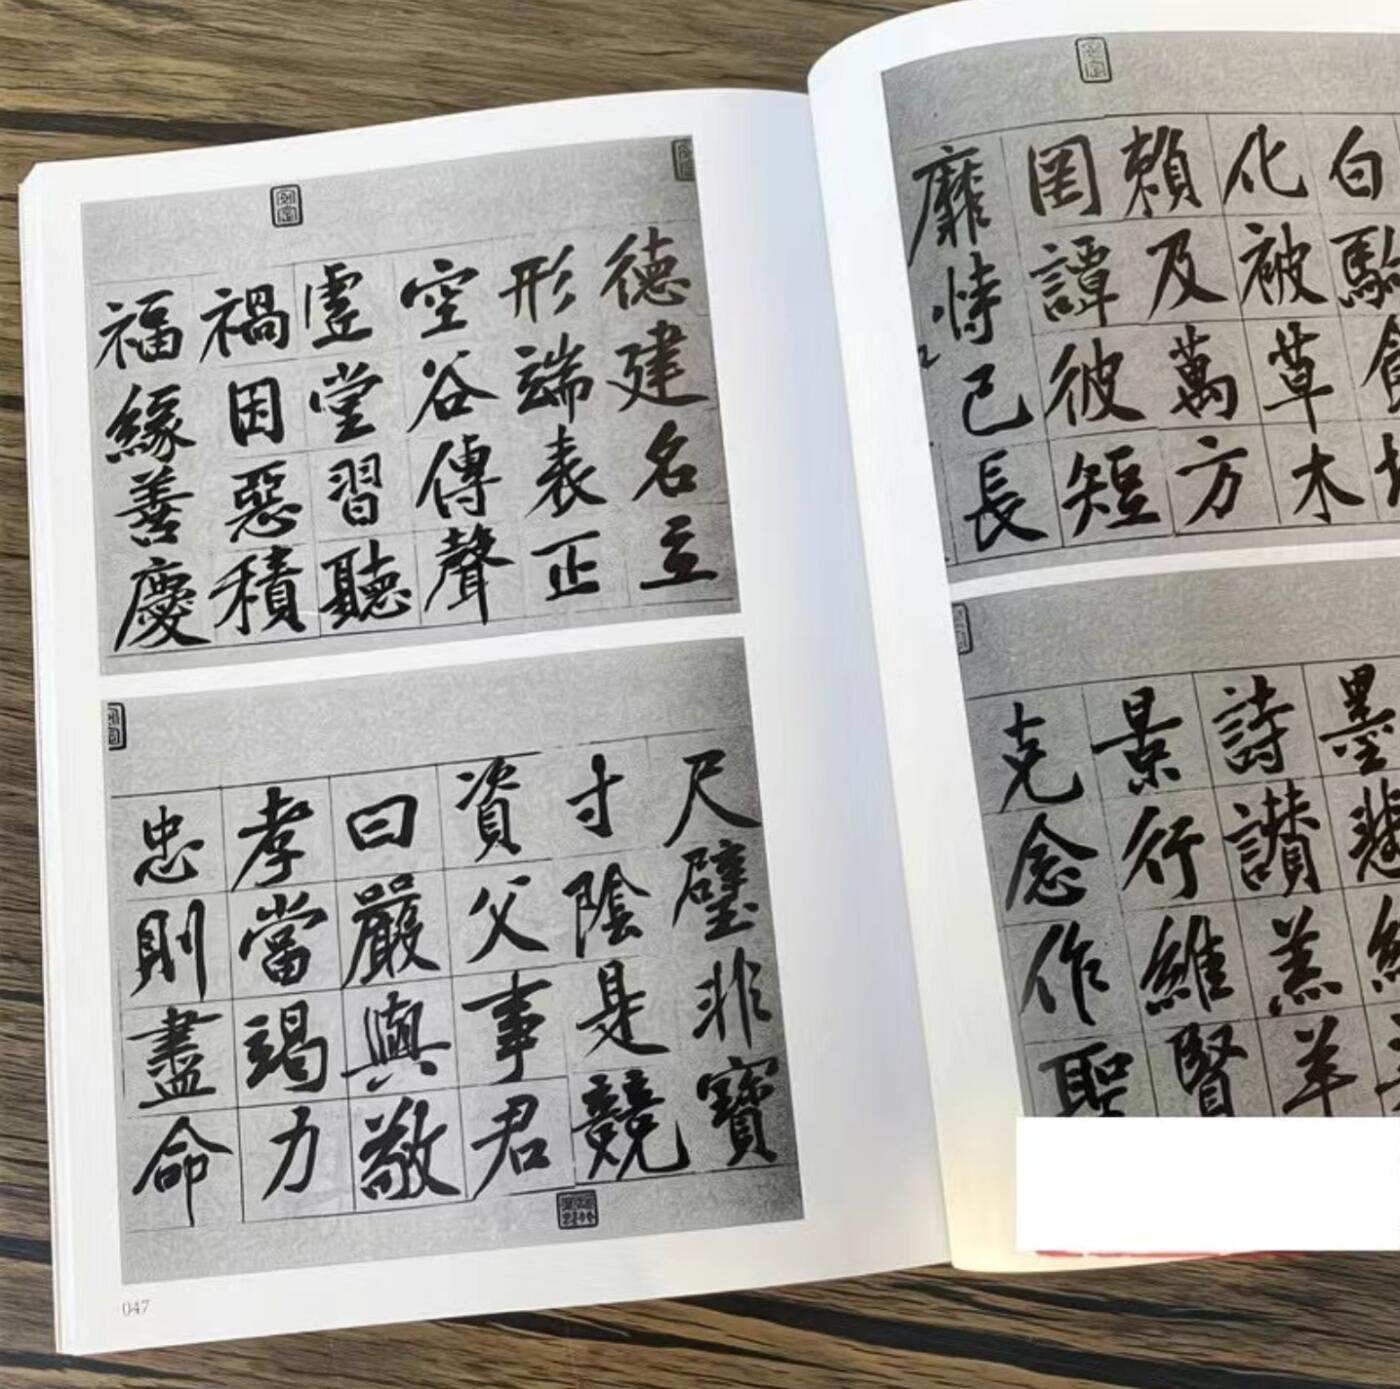 白駒
化被草木
賴及萬方
罔譚彼短
靡恃己長
墨悲
詩讚羔羊
景行維賢
克念作聖
德建名立
形端表正
空谷傳聲
虛堂習聽
禍因惡積
福緣善慶
尺璧非寶
寸陰是競
資父事君
曰嚴與敬
孝當竭力
忠則盡命
047